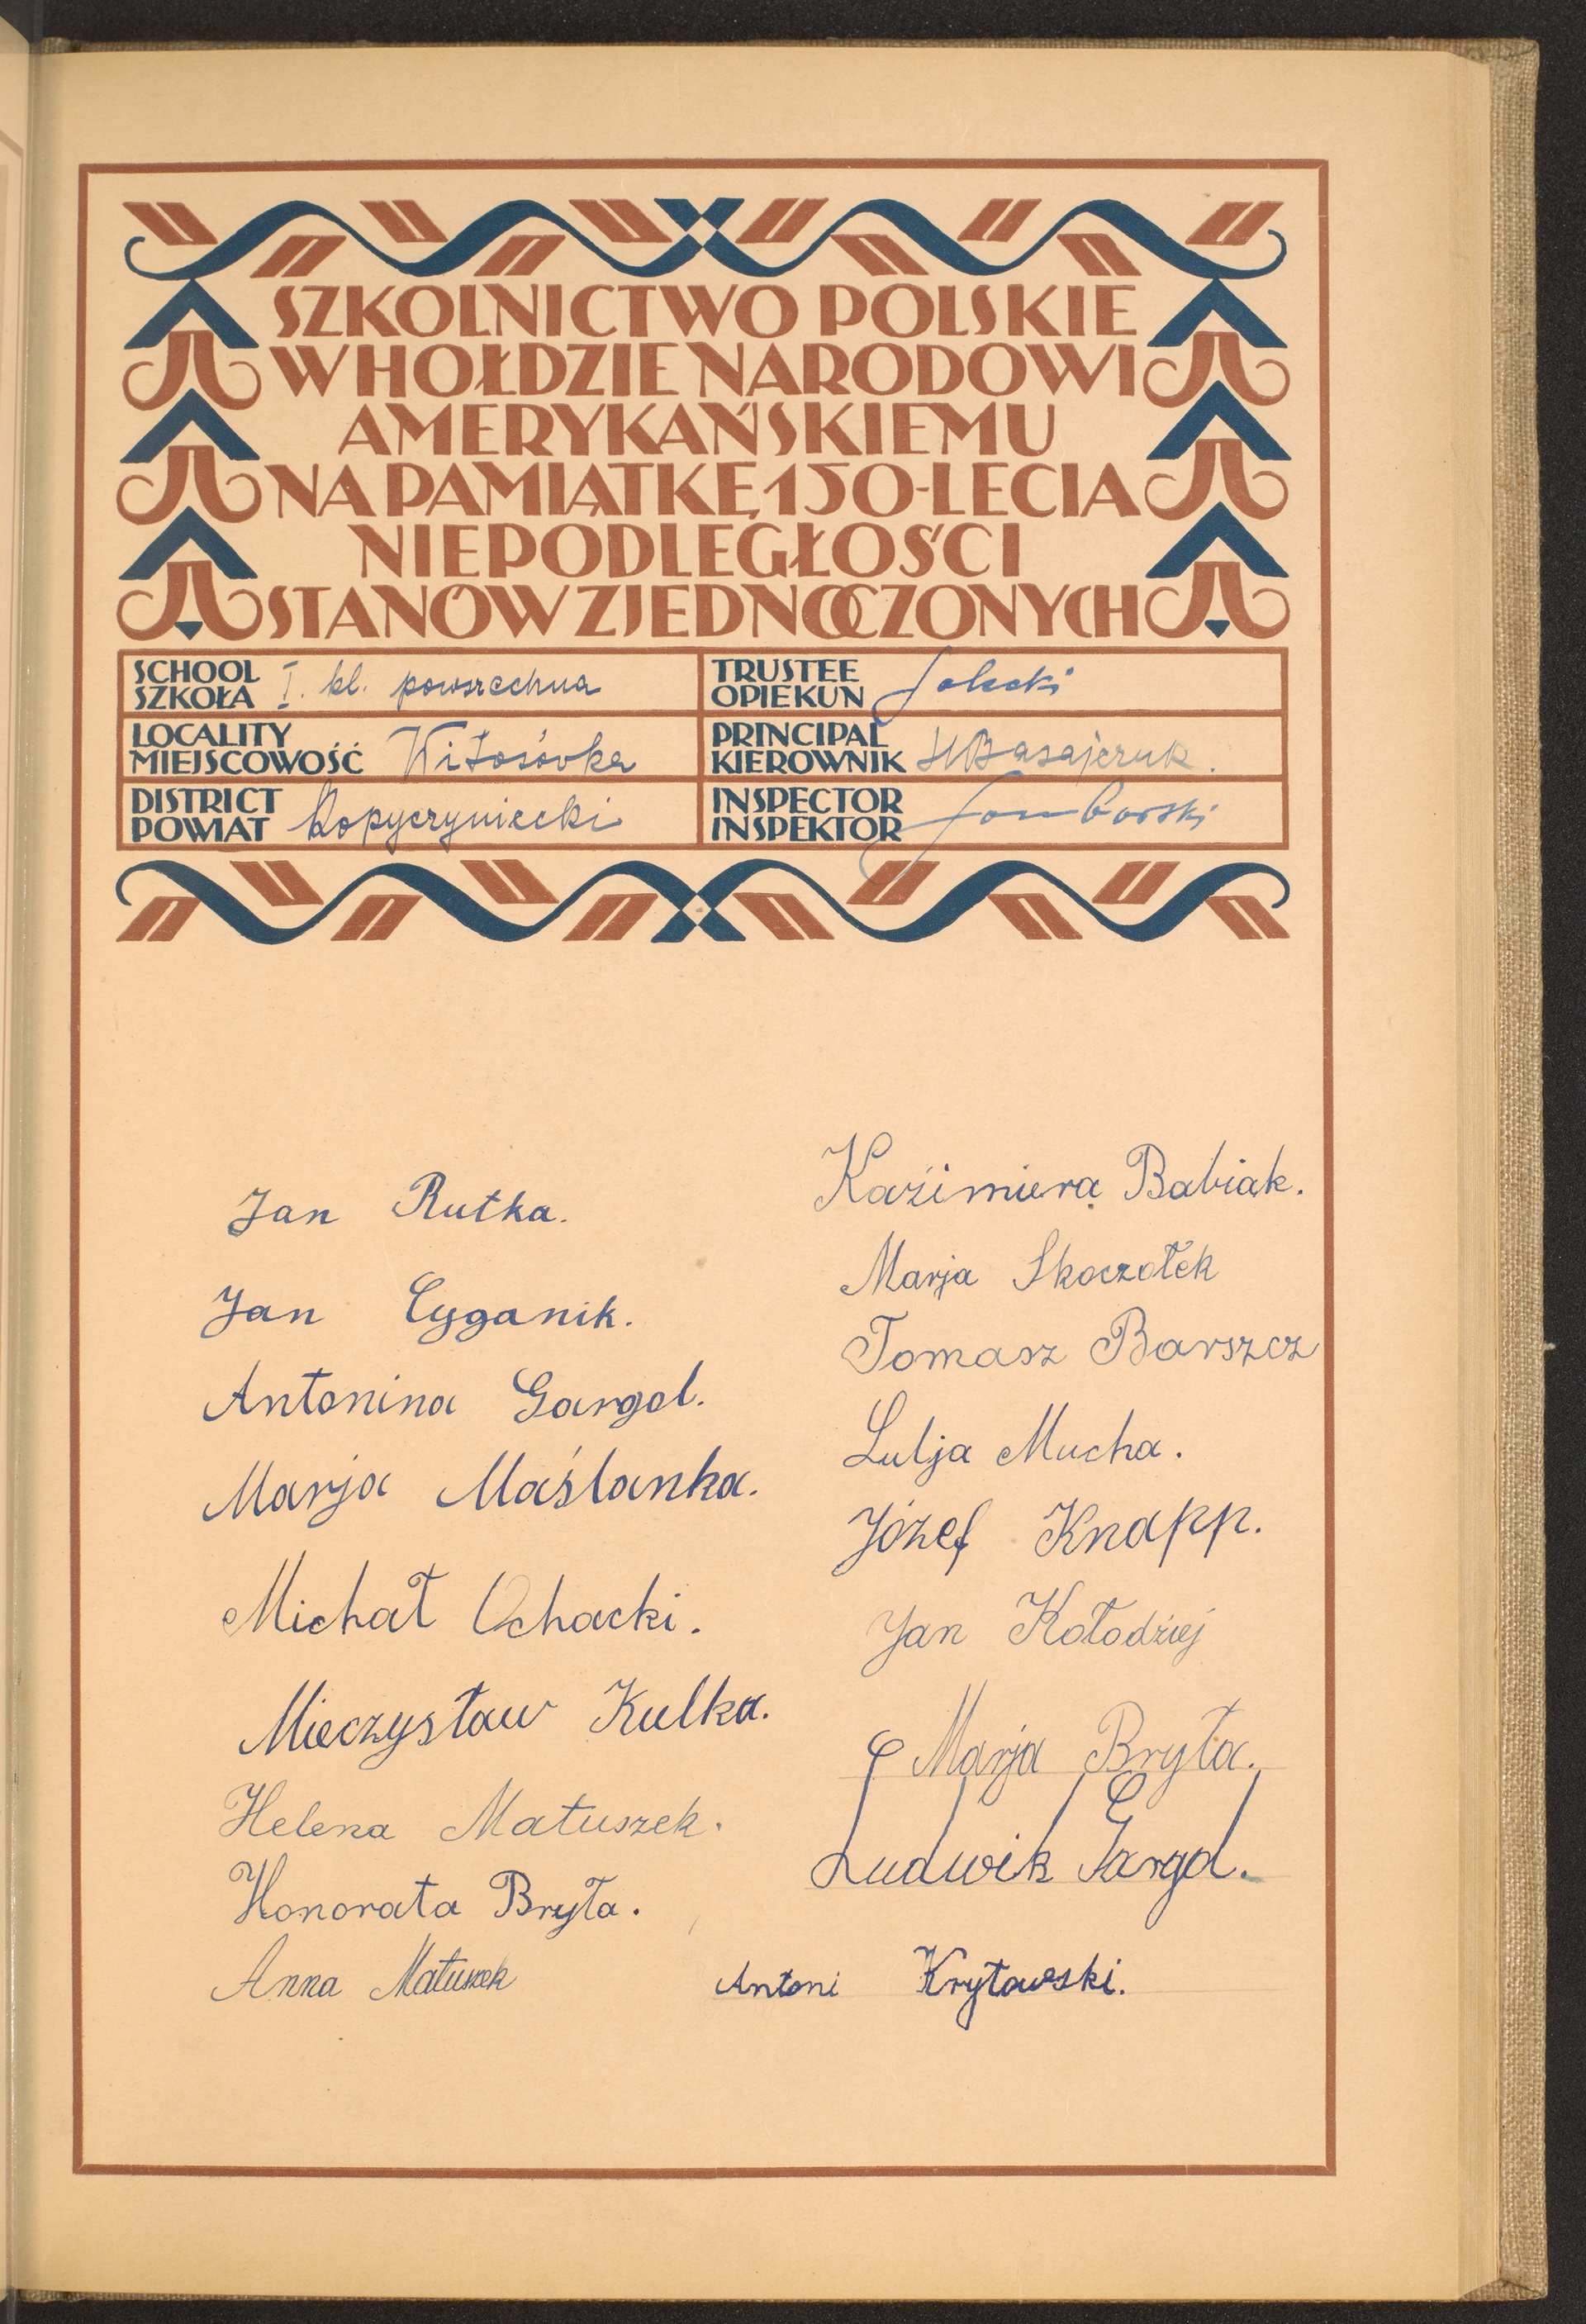 SZKOLNICTWO POLSKIE
W HOŁDZIE NARODOWI
AMERYKAŃSKIEMU
NA PAMIĄTKĘ 150-LECIA
NIEPODLEGŁOŚCI
STANÓW ZJEDNOCZONYCH
SCHOOL
SZKOŁA I. kl. powszechna
TRUSTEE
OPIEKUN Solecki
LOCALITY
MIEJSCOWOŚĆ Witosówka
PRINCIPAL
KIEROWNIK
DISTRICT
POWIAT Kopyczyniecki
INSPECTOR
INSPEKTOR
Jan Rutka.
Jan Cyganik.
Antonina Gargol.
Marja Maślanka.
Michał Ochacki.
Mieczysław Kulka.
Helena Matuszek.
Honorata Bryła.
Anna Matuszek
Kaźimiera Babiak.
Marja Skoczołek
Tomasz Barszcz
Lulja Mucha.
Józef Knapp.
Jan Kołodziej
Marja Bryła.
Ludwik Gargol.
Antoni Kryłowski.